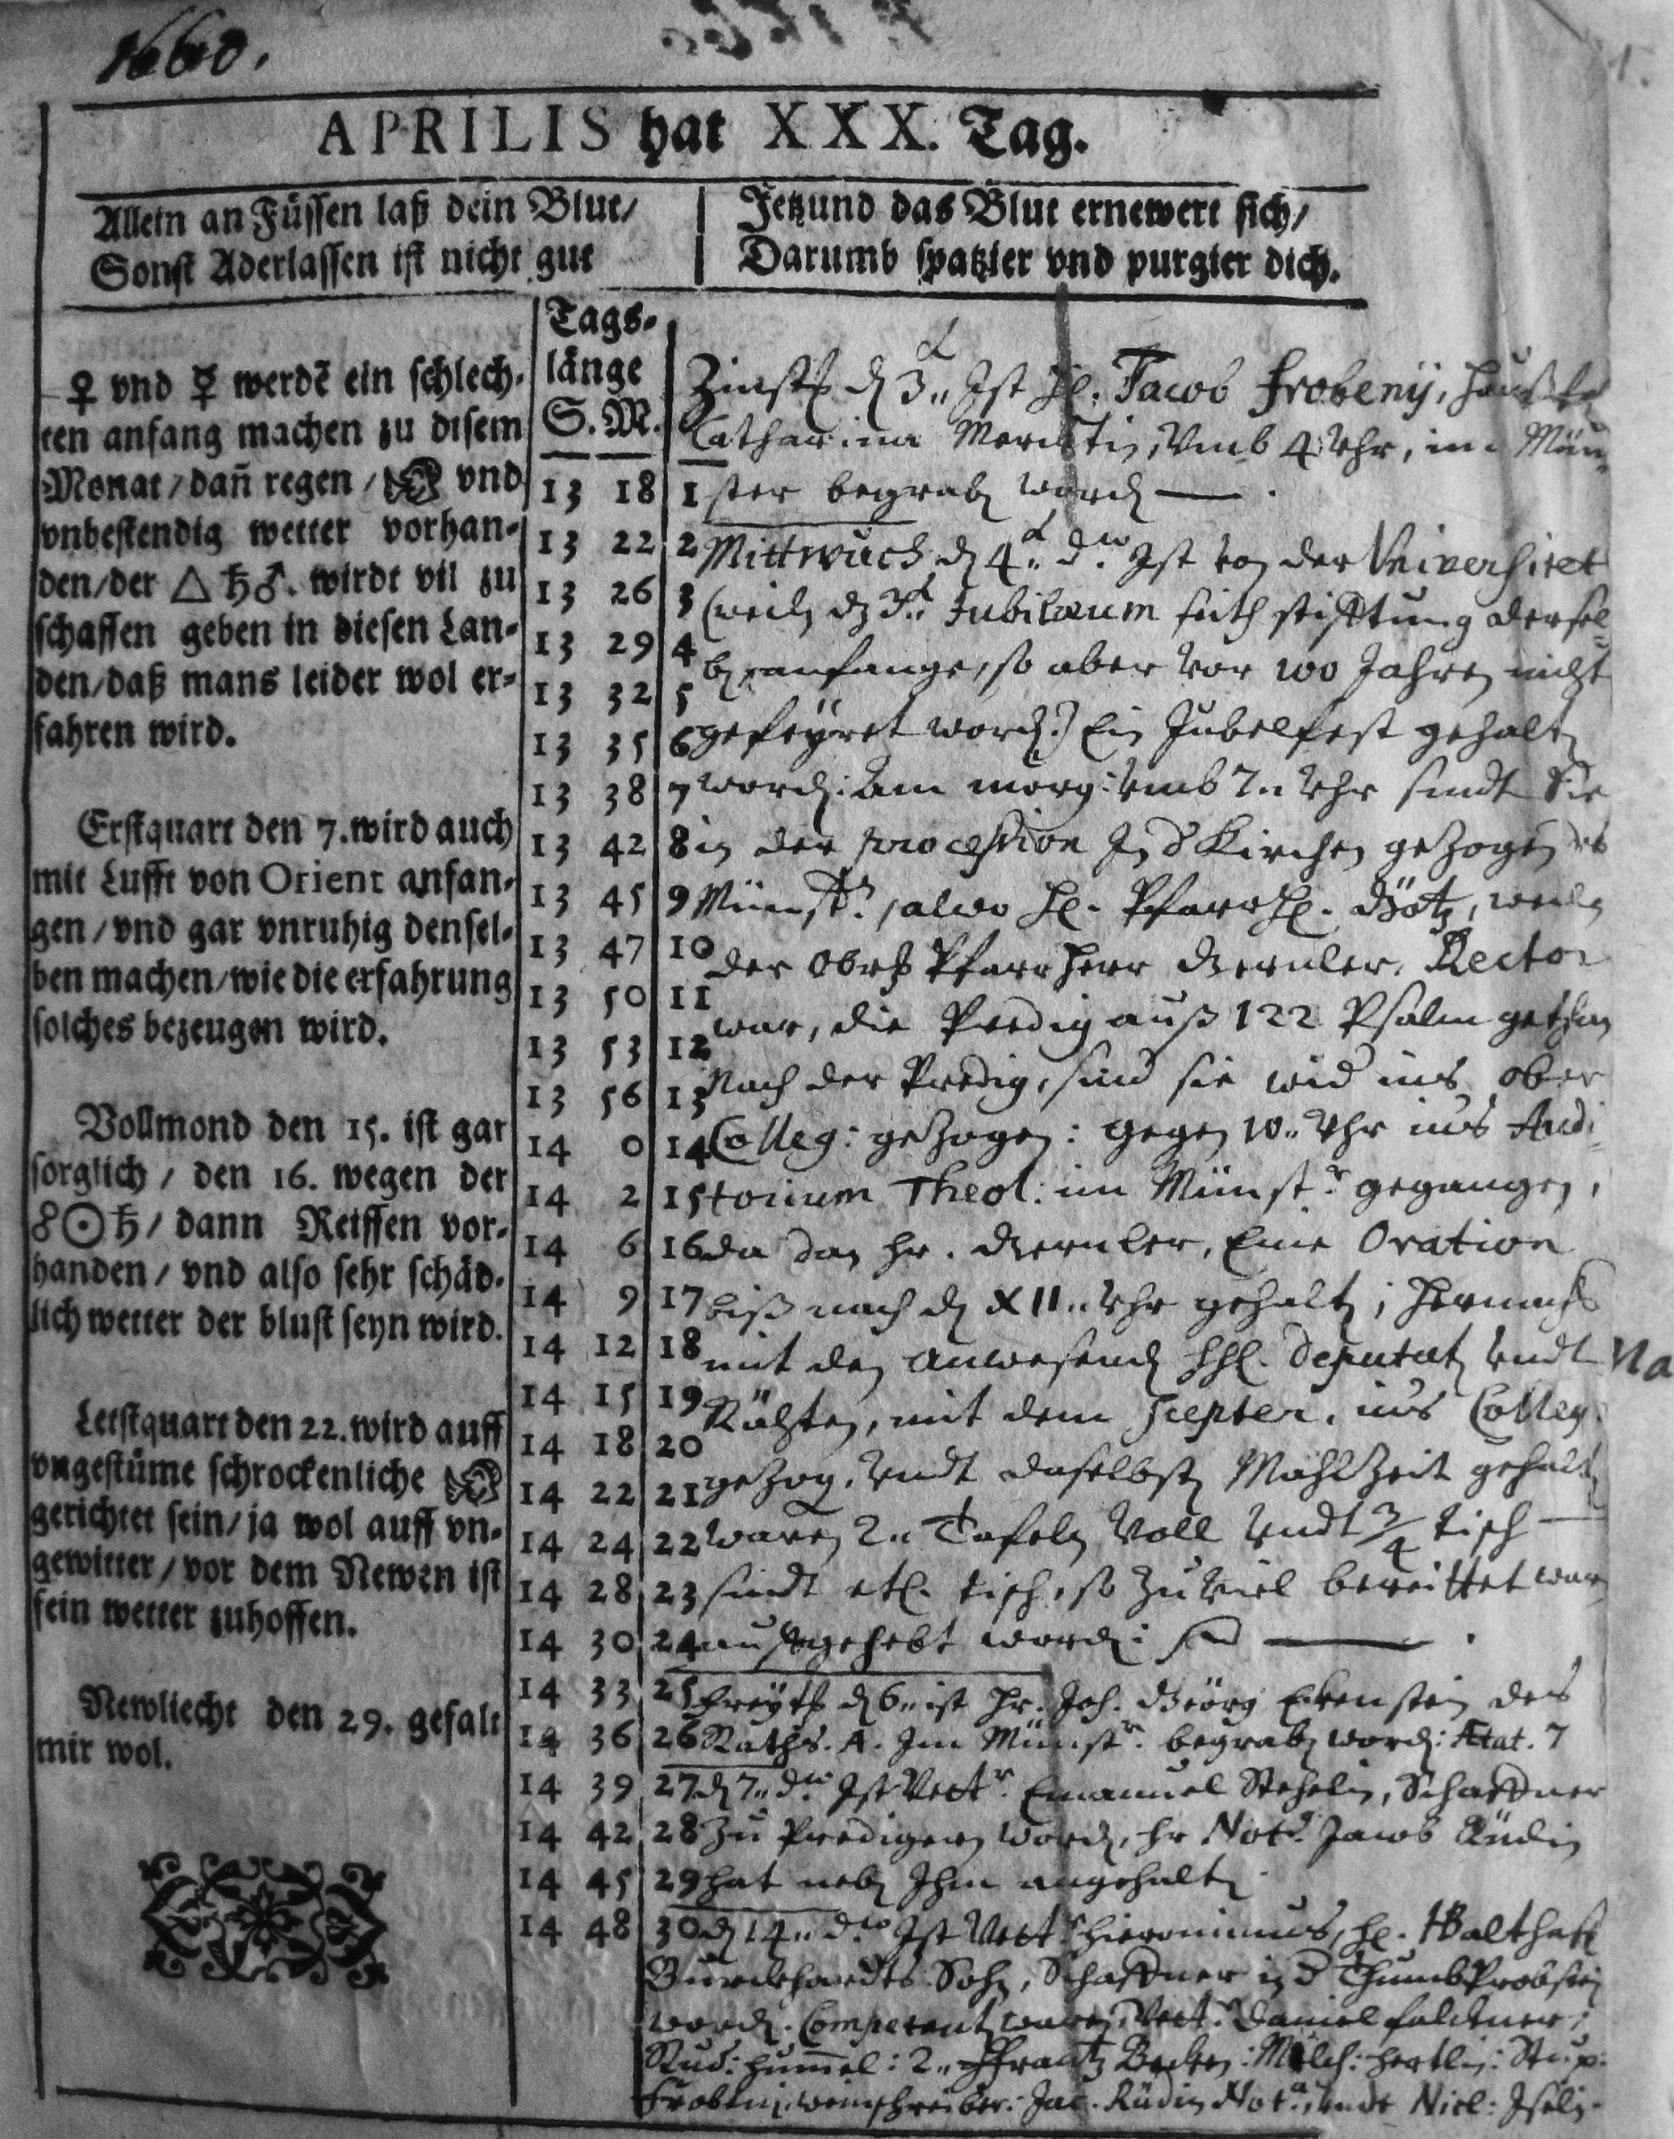 1660.
APRILIS hat XXX. Tag.
Allein an Füssen laß dein Blut/
Sonst Aderlassen ist nicht gut
Jetzund das Blut ernewert sich/
Darumb spatzier vnd purgier dich.
♀ vnd ☿ werdẽ ein schlech-
ten anfang machen zu disem
Monat/dañ regen/ vnd
vnbestendig wetter vorhan-
den/der △ ♄ ♂. wirdt vil zu
schaffen geben in diesen Lan-
den/daß mans leider wol er-
fahren wird.
Erstquart den 7. wird auch
mit Lufft von Orient anfan-
gen/vnd gar vnruhig densel-
ben machen/wie die erfahrung
solches bezeugen wird.
Vollmond den 15. ist gar
sorglich/ den 16. wegen der
☍ ☉ ♄/ dann Reiffen vor-
handen/ vnd also sehr schäd-
lich wetter der blust seyn wird.
Letstquart den 22. wird auff
vngestüme schrockenliche
gerichtet sein/ja wol auff vn-
gewitter/vor dem Newen ist
fein wetter zuhoffen.
Newliecht den 29. gefalt
mir wol.
Tags-
länge
S. M.
13 18 1
13 22 2
13 26 3
13 29 4
13 32 5
13 35 6
13 38 7
13 42 8
13 45 9
13 47 10
13 50 11
13 53 12
13 56 13
14 0 14
14 2 15
14 6 16
14 9 17
14 12 18
14 15 19
14 18 20
14 22 21
14 24 22
14 28 23
14 30 24
14 33 25
14 36 26
14 39 27
14 42 28
14 45 29
14 48 30
Zinst. d 3.. Ist H. Jacob Frobenij,
Catharina Vmb 4 Vhr, im Mün
ster begrab word
Mittwuch d 4.. do Ist von der Vniversitet
(weil dz 3. Jubilæum seith stifftung dersel
b anfange, so aber vor 100 Jahren nicht
gefeyret word) Ein Jubelfest gehalt
word: Am morg: vmb 7.. Vhr sindt Sie
in der procession In d Kirchen gezogen
Münstr, alwo H. PfarrH. Götz, weil
der Obrst Pfarrherr Gernler, Rector
war, die Predig auß 122 Psalm gethan
Nach der Predig, sind sie wid ins ober
Colleg: gezogen: gegen 10.. Vhr ins Audi
torium Theol: im Münstr gegangen,
da dan Hr. Gernler, Eine Oration
biß nach d XII.. Vhr gehalt; hernach
mit den Anwesend HH. Deputat vndt
Räthen, mit dem Scepter, ins Colleg:
gezog, vndt daselbst Mahlzeit gehalt
waren 2.. Tafeln Voll vndt 3/4 tisch
sindt etl. tisch, so zu viel bereittet war
außgehebt word:
Freyt. d 6.. ist Hr. Joh. Geörg Eckenstein des
Raths. A. Im Münstr. begrab word: Ætat. 7
d 7.. do Ist Vettr Emanuel Stehelin, Schaffner
Zu Predigern word, Hr Not. Jacob Rüdin
hat neb Ihm angehalt
d 14.. do Ist Vettr Hieronimus, H. Balthas
Burckhardts Sohn, Schaffner in d ThumbProbstei
word. Competent waren, Vett. Daniel Falckner;
Stud: Hummel: 2.. Frantz Becken: Melch: Hertlin:
Frobeni, weinschreiber: Jac. Rüdin Not., vndt Nicl: Iselin